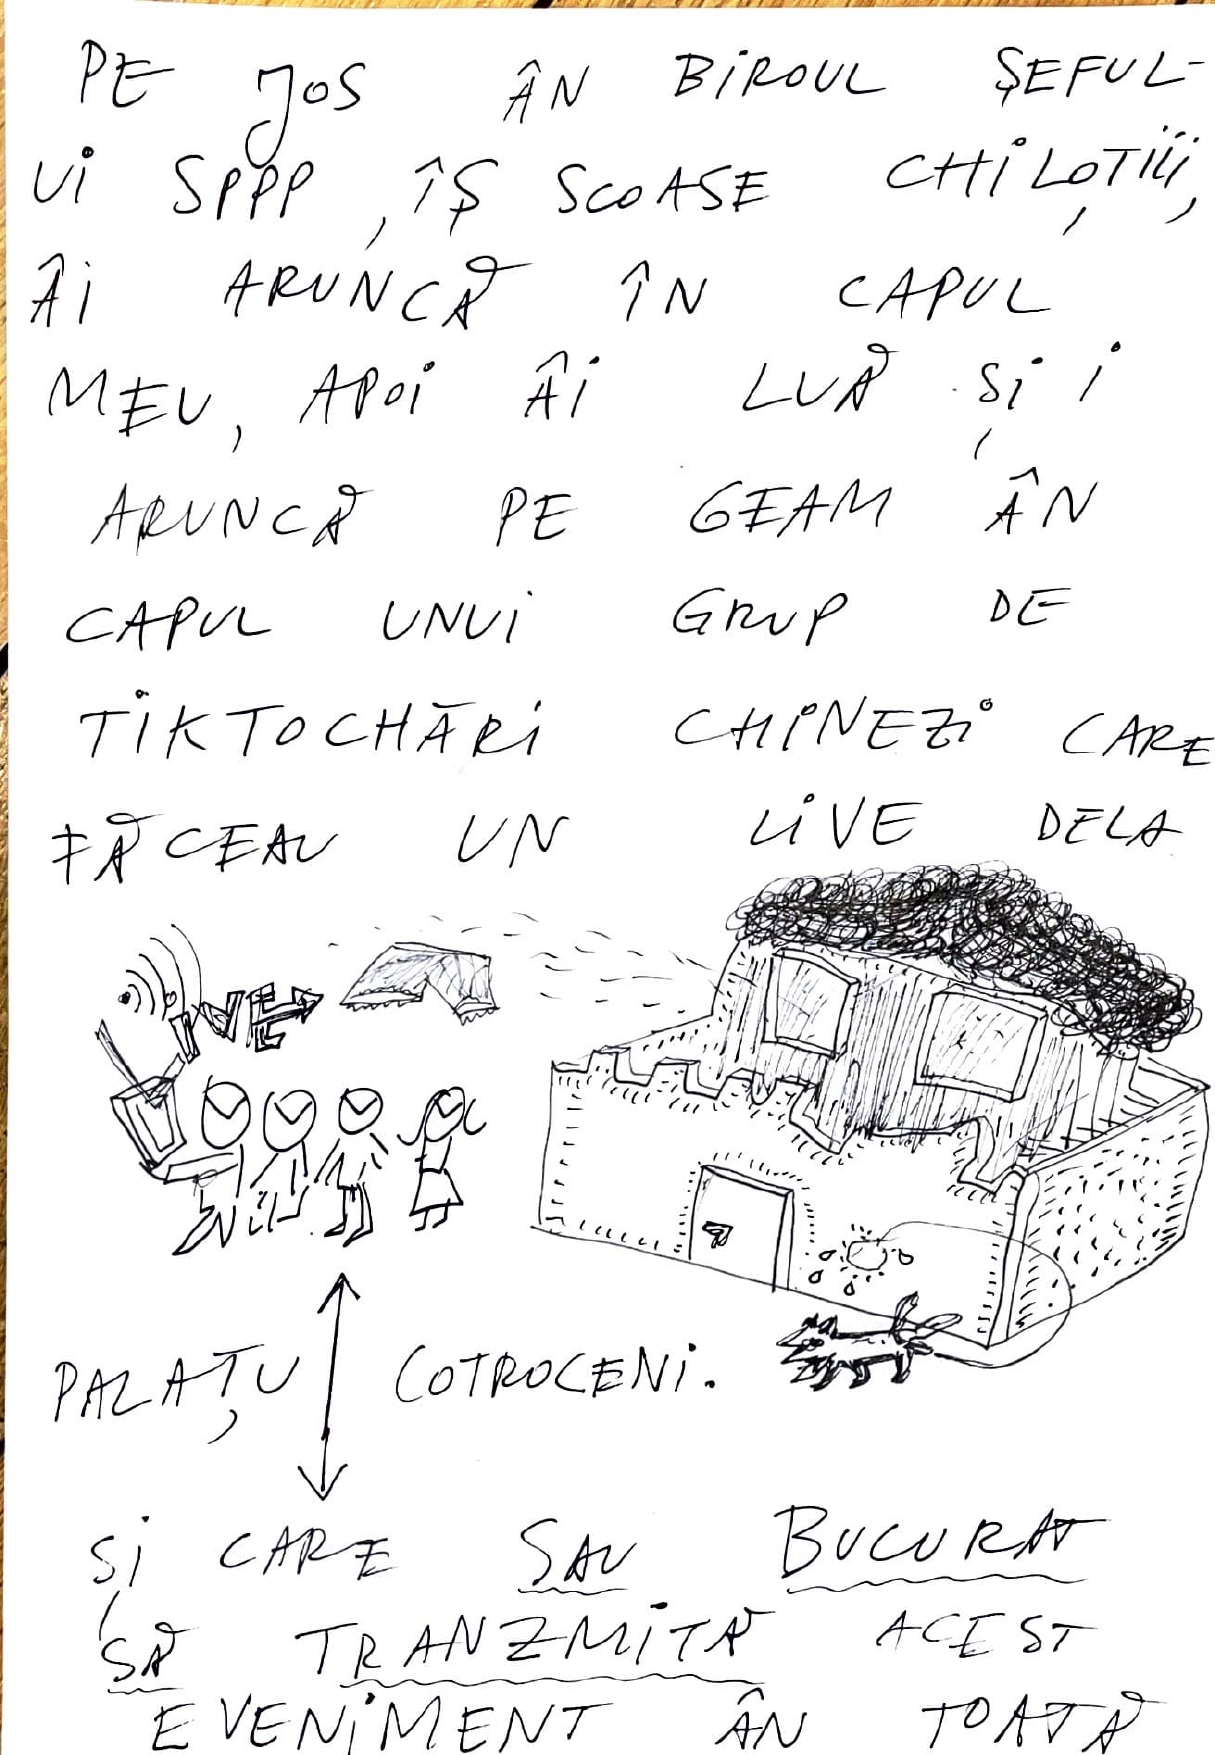 PE JOS ÂN BIROUL ŞEFUL-
UI SPPP, ÎŞ SCOASE CHILOȚIII,
ÂI ARUNCĂ ÎN CAPUL
MEU, APOI ÂI LUĂ ȘI I
ARUNCĂ PE GEAM ÂN
CAPUL UNUI GRUP DE
TIKTOCHĀRI CHINEZI CARE
FĂCEAU UN LIVE DELA
LIVE
PALAȚU COTROCENI.
ȘI CARE SAU BUCURAT
SĂ TRANZMITĂ ACEST
EVENIMENT ÂN TOATĂ